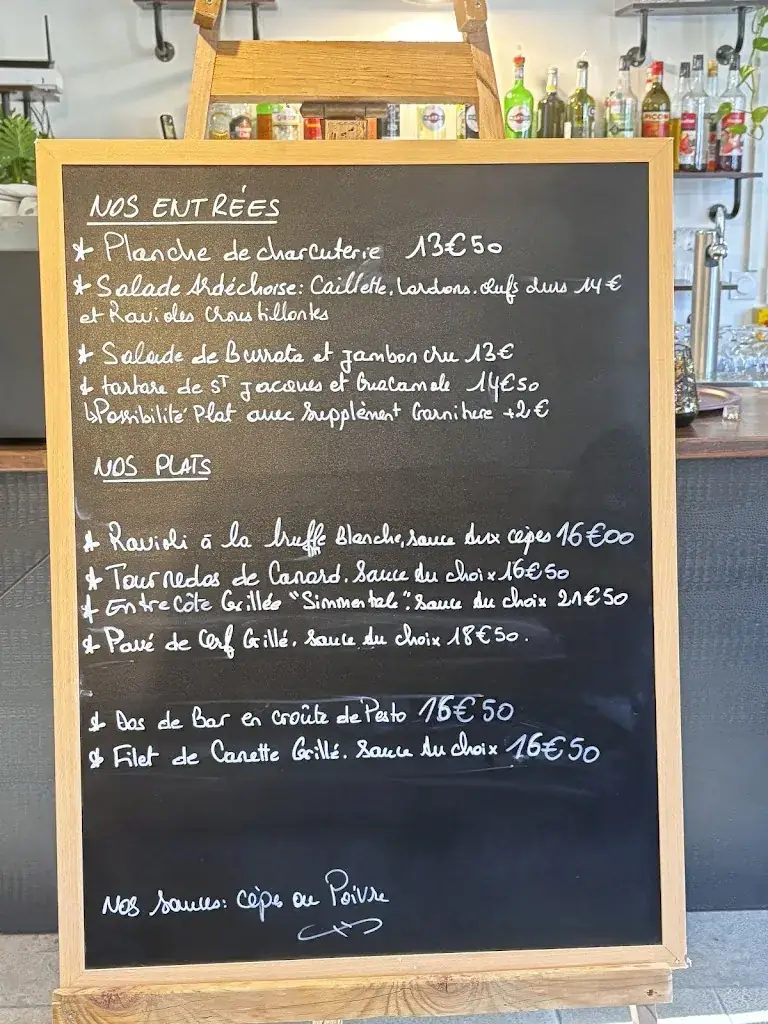 NOS ENTRÉES
* Planche de charcuterie 13€50
* Salade Ardéchoise: Caillette, Lardons, œufs durs 14€
et Ravioles Croustillantes
* Salade de Burrata et jambon cru 13€
* tartare de ST Jacques et Guacamole 14€50
↳Possibilité Plat avec Supplèment Garniture +2€
NOS PLATS
* Ravioli à la truffe Blanche, sauce aux cèpes 16€00
* Tournedos de Canard. Sauce du choix 16€50
* Entrecôte Grillée "Simmental". sauce du choix 21€50
* Pavé de Cerf Grillé. Sauce du choix 18€50.
* Dos de Bar en croûte de Pesto 16€50
* Filet de Canette Grillé. Sauce du choix 16€50
Nos sauces: cèpes ou Poivre
PICON